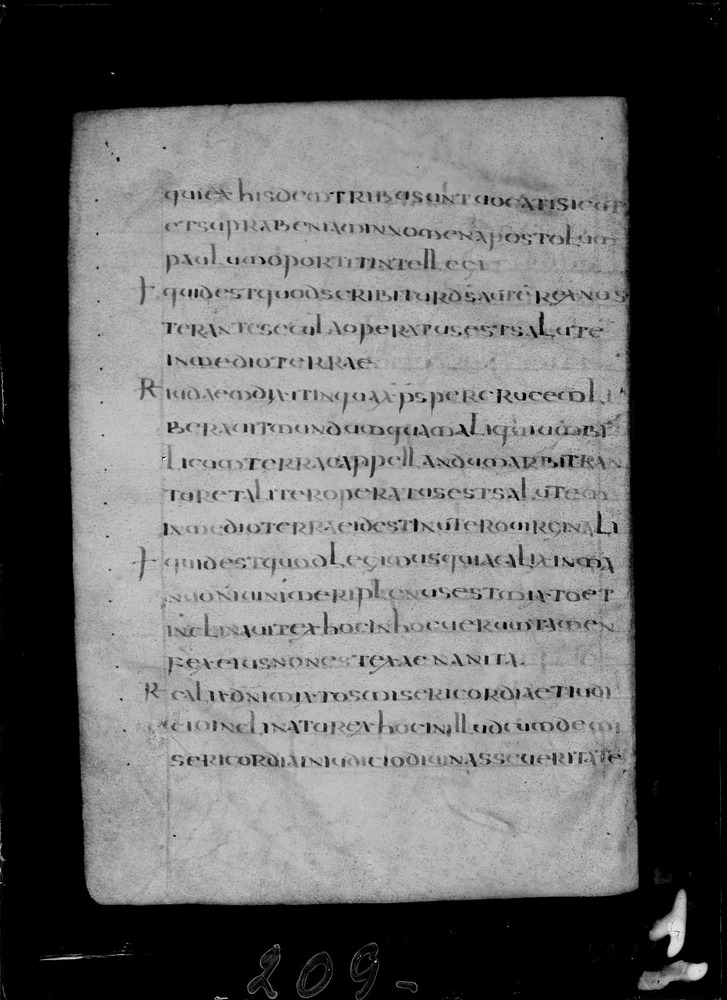 qui ex hisdem tribus sunt uocati sicut
et supra beniamin nomen apostolum
paulum oportit intellegi
quid est quod scribitur d̄s autē rex nos
ter ante secula operatus est salute
in medio terrae
R iudaem dia itinqua xp̄s per crucem li
berauit mundum quam aliqui umbi
licum terra appellandum arbitran
tur et aliter operatus est salutem
in medio terrae id est in utero uirginali
quid est quod legimus quia calix in ma
nu dn̄i uini meri plenus est mixto et
inclinauit ex hoc in hoc uerum tamen
fex eius non est exaenanita
R calix dn̄i mixtos misericordia et iudi
cio inclinatur ex hoc in illud cum de mi
sericordia in iudicio diuinas seueritate
209